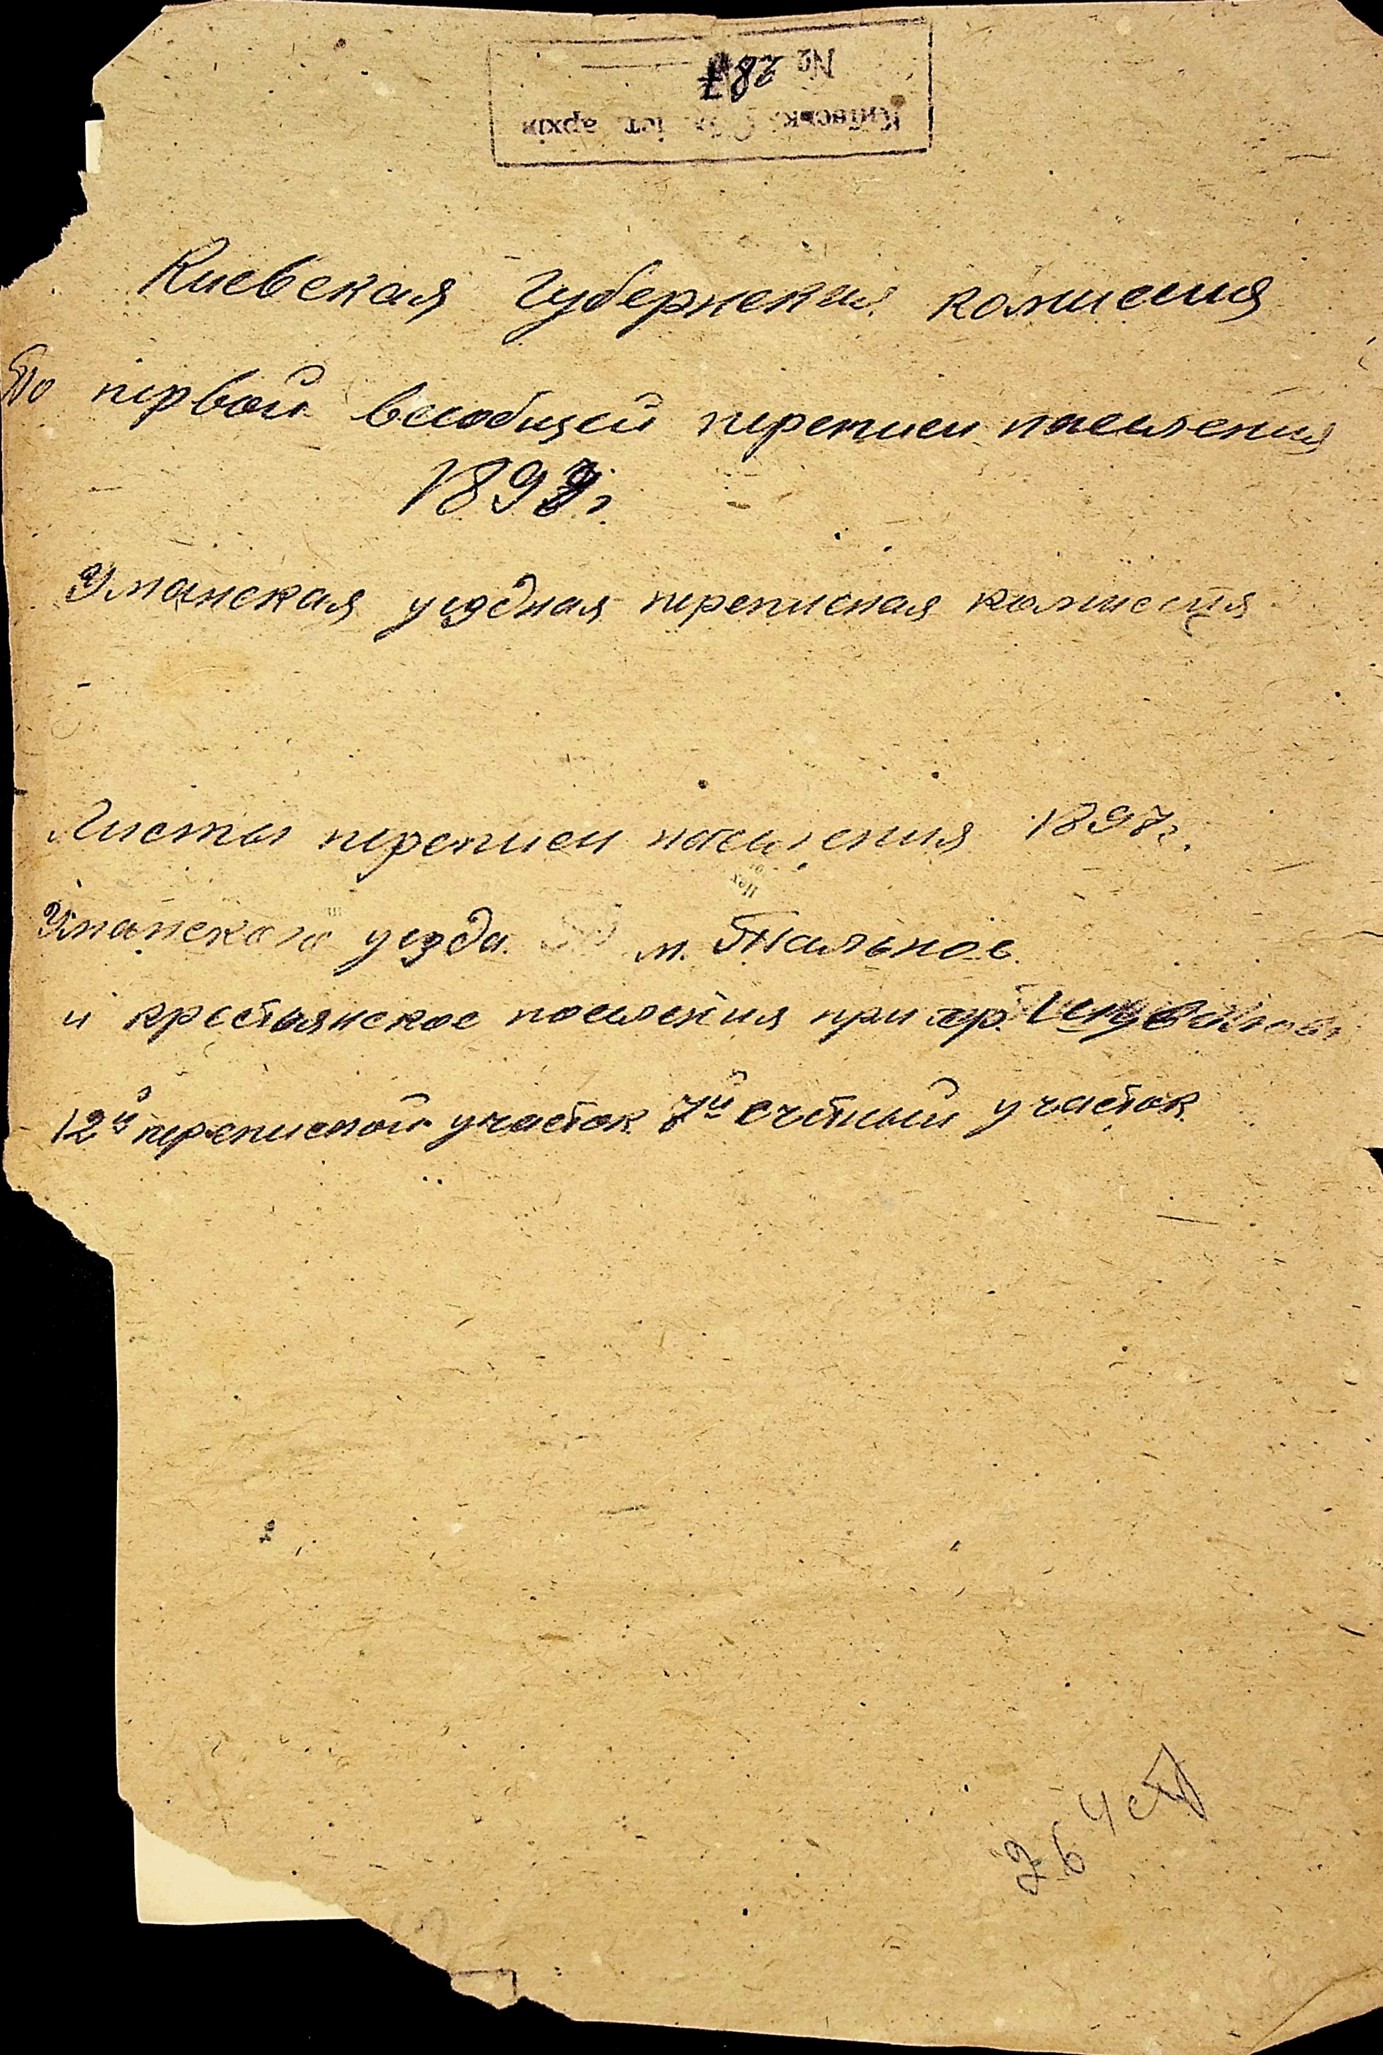 № 287
Київськ. іст. архів
Киевская Губернская комисия
По первой всеобщей переписи поселения
1897г.
Уманская уездная переписная комиссия
Листы переписи населения 1897г.
Уманского уезда м. Тальное
и крестьянское поселения при
12й переписной участок 7й счётный участок
26